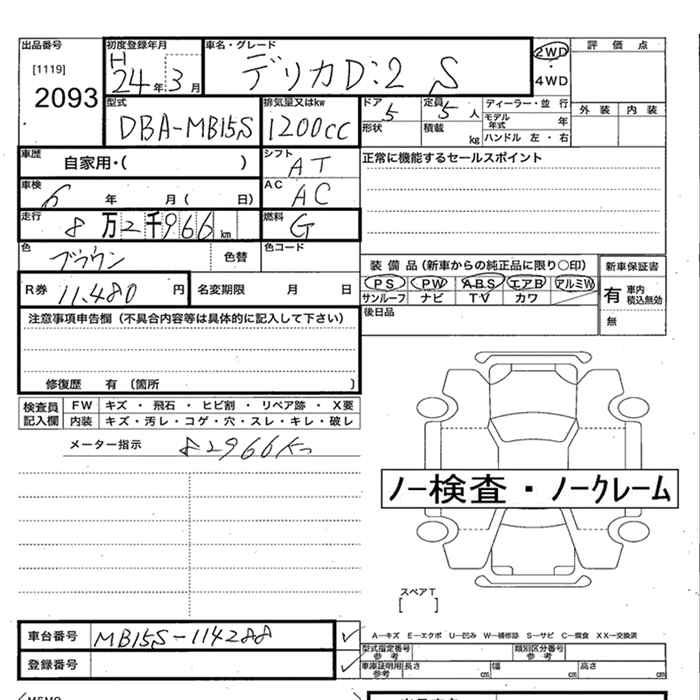 出品番号 初度登録年月 車名・グレード 2WD 評価点
[1119] H 24年3月 デリカD:2 S ・
2093 4WD
型式 排気量又はkw ドア 定員 ディーラー・並行 外装 内装
DBA-MB15S 1200cc 5 5人 モデル年式 年
形状 積載 kg ハンドル 左・右
車歴 自家用・( ) シフト AT 正常に機能するセールスポイント
車検 年 月( 日) AC AC
走行 8万2千966km 燃料 G
色 ブラウン 色替 色コード
装備品(新車からの純正品に限り○印) 新車保証書
R券 11,480円 名変期限 月 日 PS PW ABS エアB アルミW 有 車内 積込無効
サンルーフ ナビ TV カワ
注意事項申告欄(不具合内容等は具体的に記入して下さい) 後日品 無
修復歴 有 〔箇所 〕
検査員記入欄 FW キズ・飛石・ヒビ割・リペア跡・X要
内装 キズ・汚レ・コゲ・穴・スレ・キレ・破レ
メーター指示 82966km
ノー検査・ノークレーム
スペアT
[ ]
車台番号 MB15S-114288 ✓ A-キズ E-エクボ U-凹み W-補修跡 S-サビ C-腐食 XX-交換済
型式指定番号 参考 類別区分番号 参考
登録番号 ✓ 車庫証明用 参考 長さ cm 幅 cm 高さ cm
MEMO